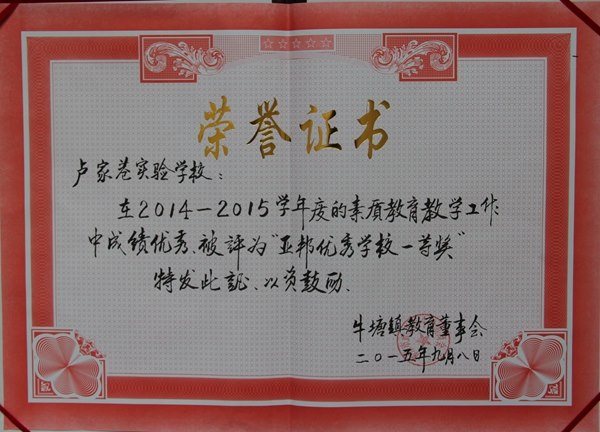 荣誉证书
卢家巷实验学校：
在2014－2015学年度的素质教育教学工作
中成绩优秀、被评为“亚邦优秀学校一等奖”
特发此证、以资鼓励、
牛塘镇教育董事会
二〇一五年九月八日